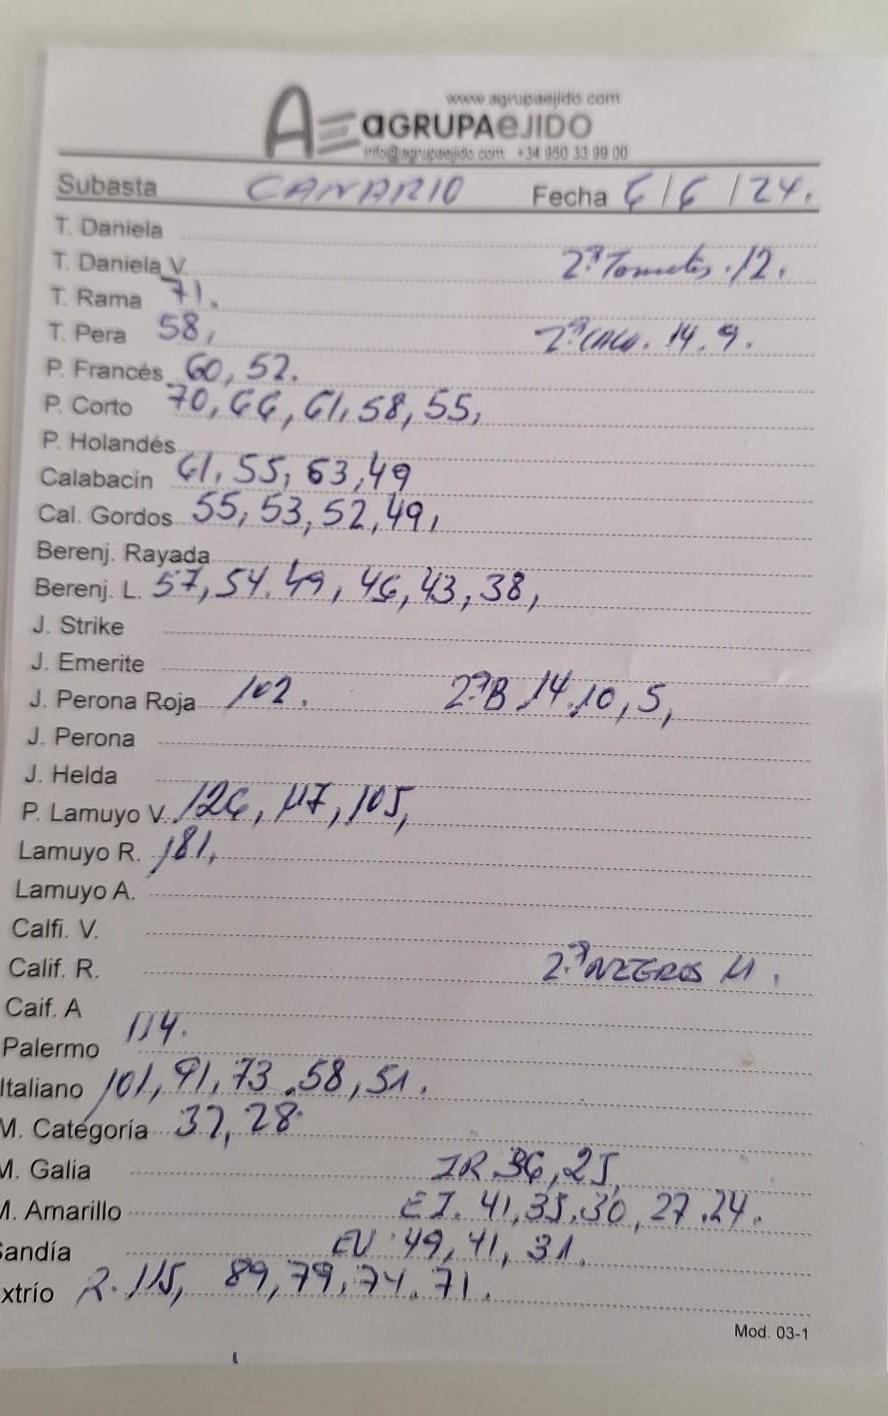 www.agrupaejido.com
AE aGRUPAeJIDO
info@agrupaejido.com +34 950 33 99 00
Subasta CANARIO Fecha 6/6/24.
T. Daniela
T. Daniela V. 2ª Tomates. 12.
T. Rama 71.
T. Pera 58, 14. 9.
P. Francés 60, 52.
P. Corto 70, 66, 61, 58, 55,
P. Holandés
Calabacín 61, 55, 53, 49
Cal. Gordos 55, 53, 52, 49,
Berenj. Rayada
Berenj. L. 57, 54. 49, 46, 43, 38,
J. Strike
J. Emerite
J. Perona Roja 102. 2ªB 14. 10, 5,
J. Perona
J. Helda
P. Lamuyo V. 126, 117, 105,
Lamuyo R. 181,
Lamuyo A.
Calfi. V.
Calif. R. 2ª NEGROS 11.
Caif. A
Palermo 114.
Italiano 101, 91, 73. 58, 51.
M. Categoría 37, 28.
M. Galia IR 36, 25,
M. Amarillo EI. 41, 35. 30, 27. 24.
Sandía EV 49, 41, 31.
xtrío R. 115, 89, 79, 74. 71.
Mod. 03-1